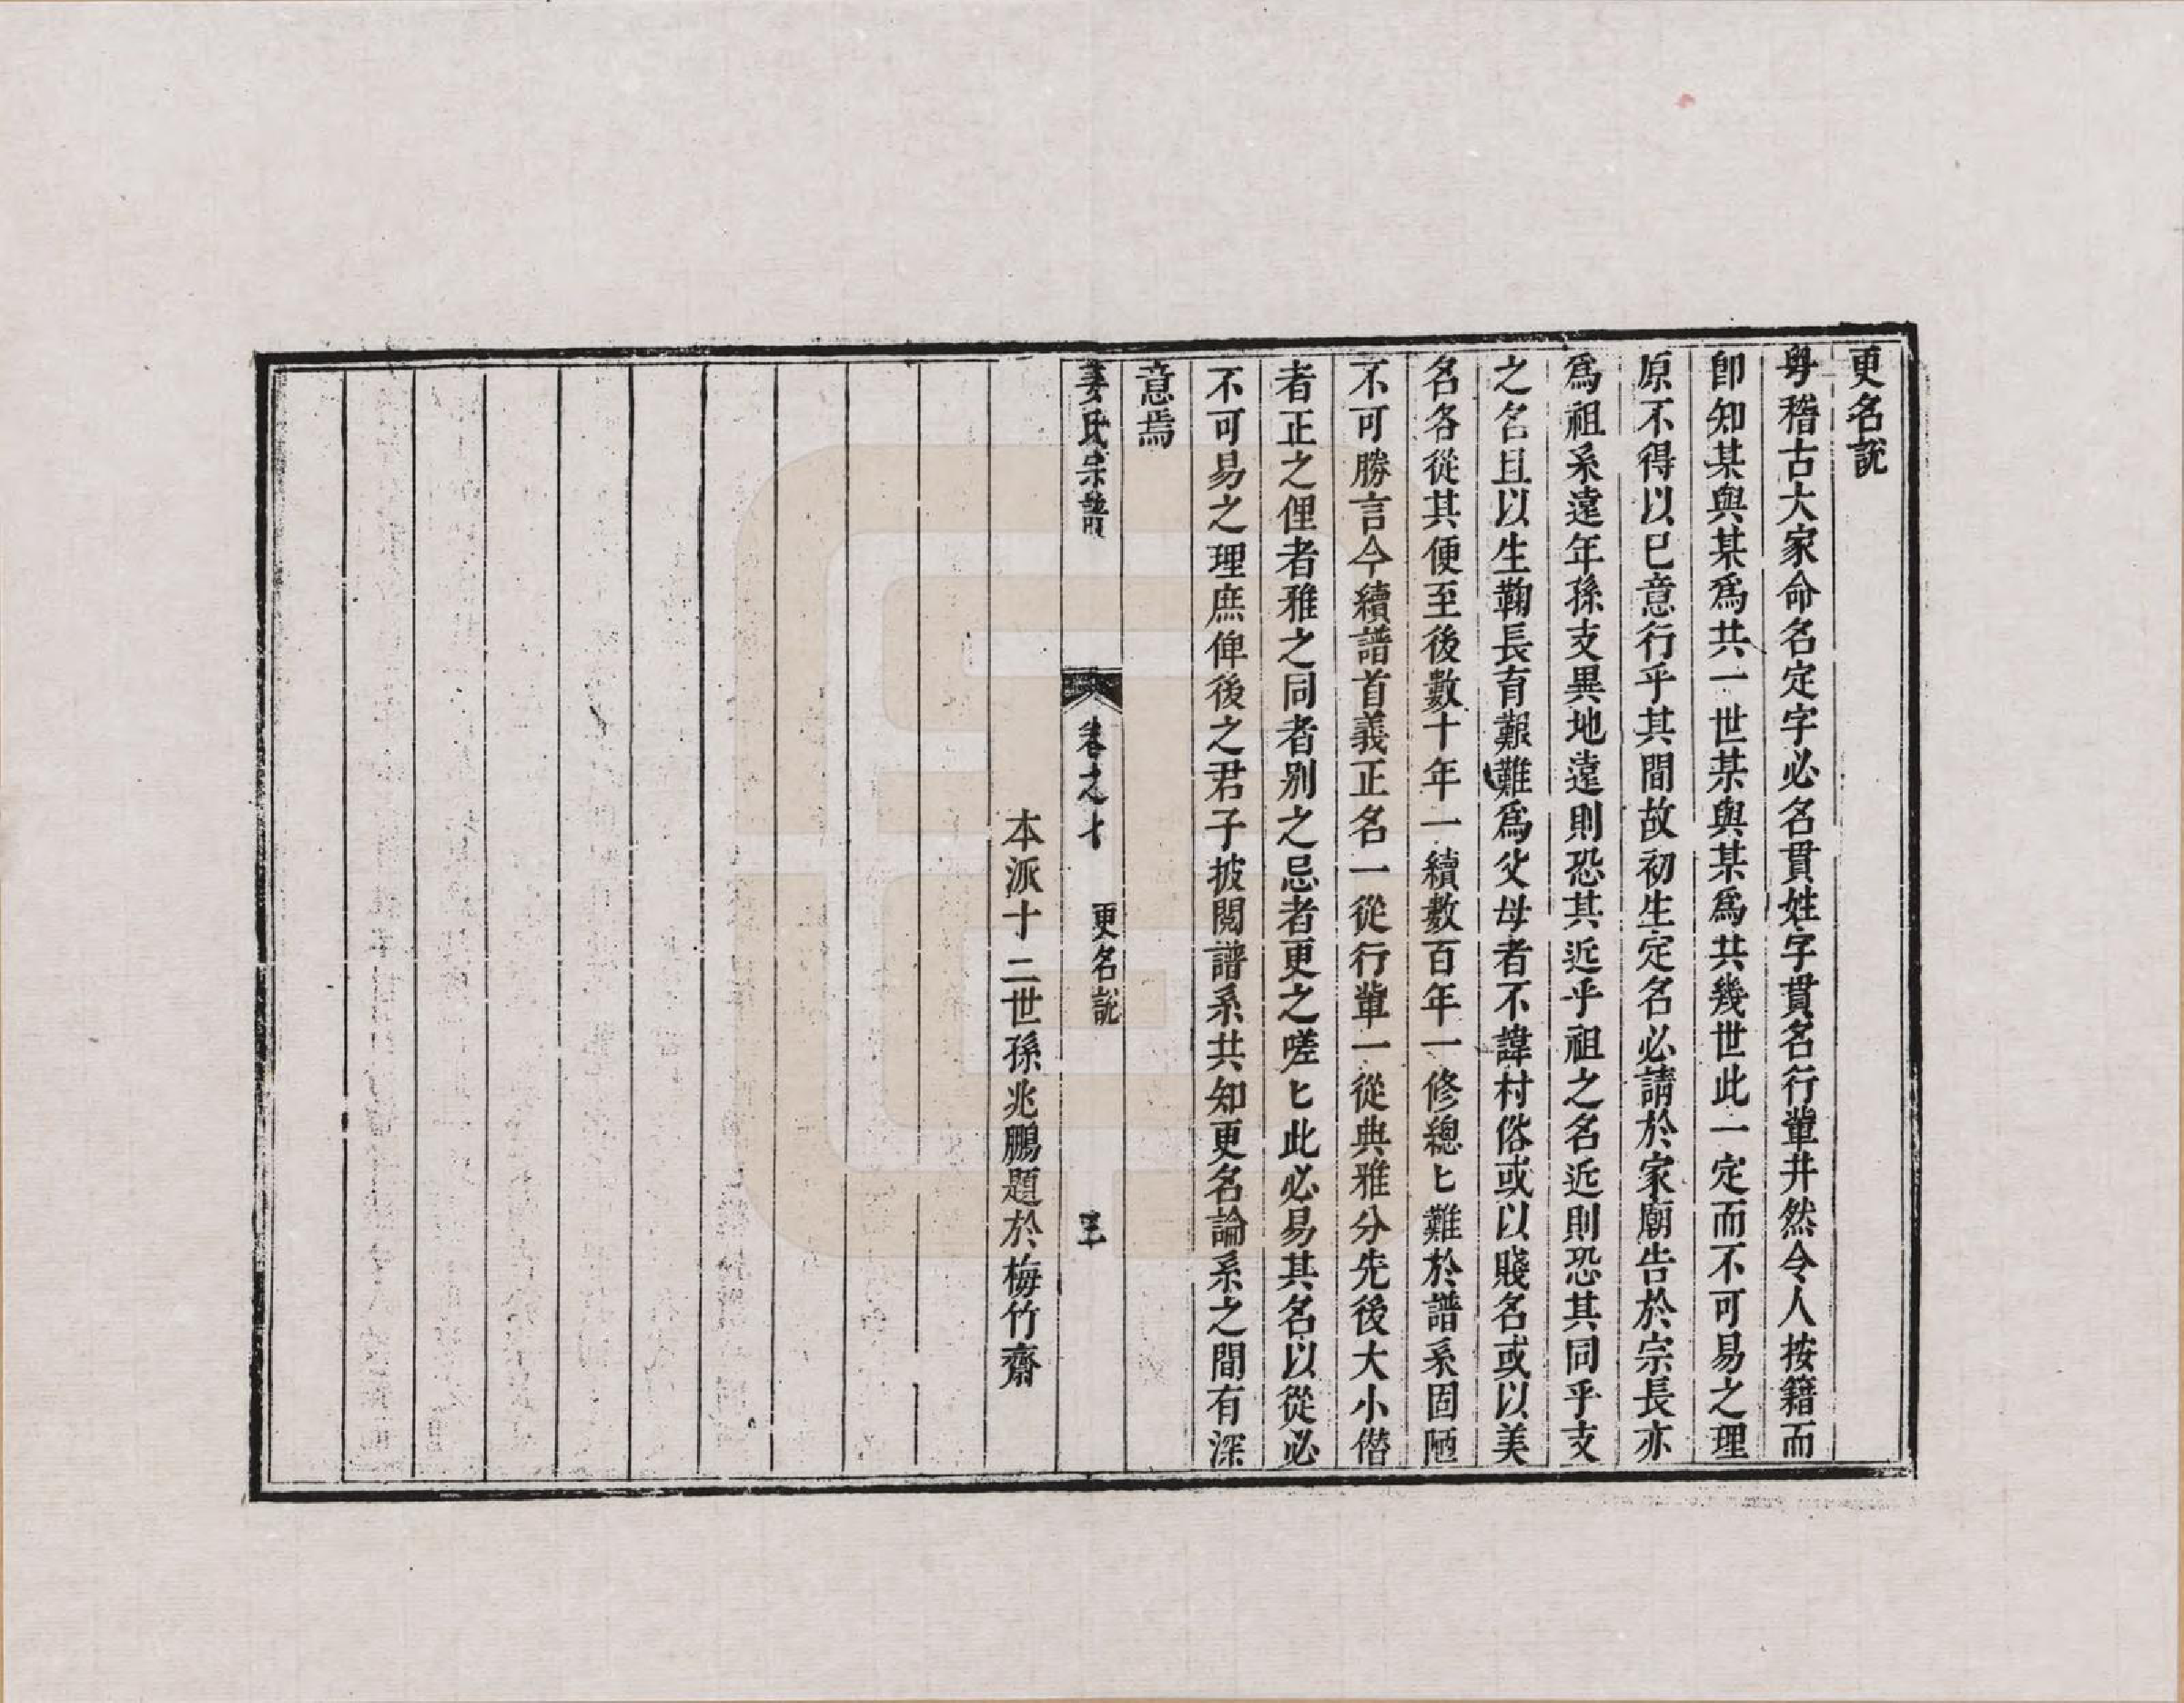 更名說
粤稽古大家命名定字必名貫姓字貫名行輩井然令人按籍而
卽知某與某爲共一世某與某爲共幾世此一定而不可易之理
原不得以已意行乎其間故初生定名必請於家廟告於宗長亦
爲祖系遠年孫支異地遠則恐其近乎祖之名近則恐其同乎支
之名且以生鞠長育艱難爲父母者不諱村俗或以賤名或以美
名各從其便至後數十年一續數百年一修總匕難於譜系固陋
不可勝言今續譜首義正名一從行輩一從典雅分先後大小僭
者正之俚者雅之同者別之忌者更之嗟匕此必易其名以從必
不可易之理庶俾後之君子披閱譜系共知更名論系之間有深
意焉
姜氏宗譜 卷之十 更名說
本派十二世孫兆鵬題於梅竹齋